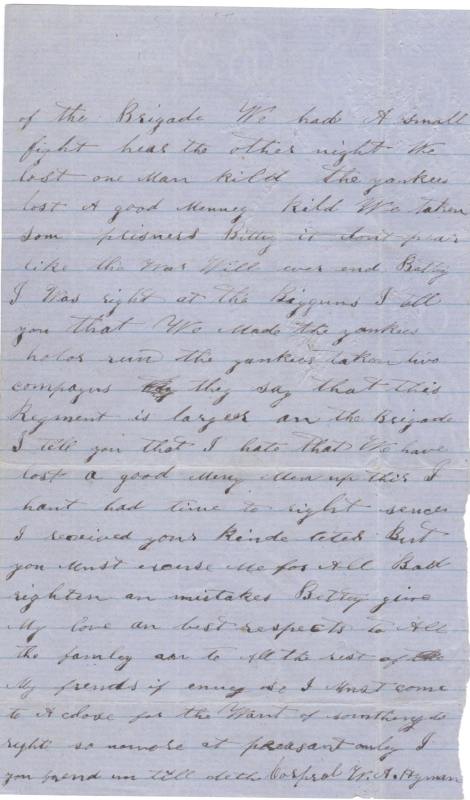 of the Brigade We had A small
fight hear the other night We
lost one Man kild the yankees
lost A good Menney kild We taken
som prisners Bettey it dont pear
like the War Will ever end Bettey
I Was right at the Bigguns I tell
you that We Made the yankees
holor run the yankees taken two
companys they say that this
Regment is larger an the Brigade
I tell you that I hate that We have
lost a good Meny Men up this I
hant had time to right sence
I received your kinde leter But
you Must excuse Me for All Bad
righten an mistakes Bettey give
My love an best respects to All
the famley an to All the rest of
My frends if enney so I Must come
to A close for the Want of somthing to
right so nomore at preasant onley I
you frend un till deth Corpral W. A. Hyman